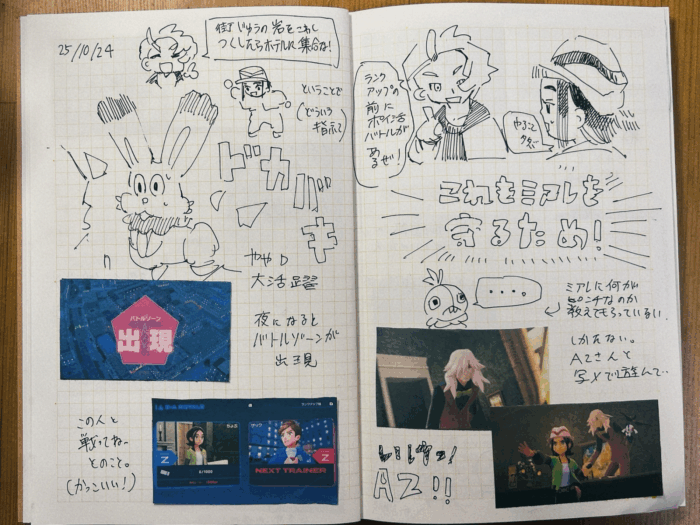 25/10/24
街じゅうの岩をこわし
つくしたらホテルに集合な!
ということで
(どういう
指示?)
ドカバキ
大活躍
バトルゾーン
出現
夜になると
バトルゾーンが
出現
この人と
戦ってねー
とのこと。
(かっこいい!)
NEXT TRAINER
ランク
アップの
前に
ポイント活
バトルが
あるぜ!
やること
タタだ
これもミアレを
守るため!
....
ミアレに何が
ピンチなのか
教えてもらっているい.
しかたない。
AZさんと
写メで遊んで..
AZ!!